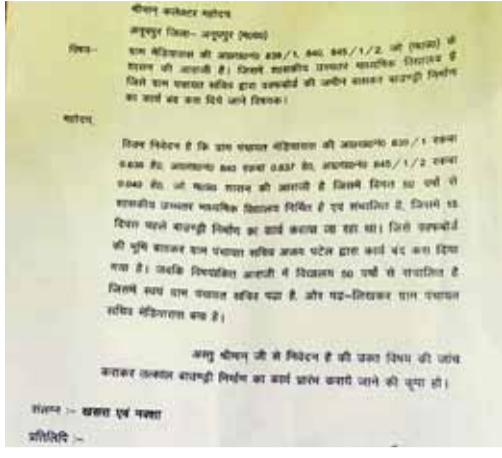 श्रीमान् कलेक्टर महोदय
अनूपपुर जिला– अनूपपुर (म०प्र०)
विषय– ग्राम मेडियारास की आ०ख०नं० 839/1, 840, 845/1/2, जो (म०प्र०) के
शासन की आराजी है। जिसमें शासकीय उच्चतर माध्यमिक विद्यालय है
जिसे ग्राम पंचायत सचिव द्वारा वक्फबोर्ड की जमीन बताकर बाउण्ड्री निर्माण
का कार्य बंद करा दिये जाने विषयक।
महोदय,
विनम्र निवेदन है कि ग्राम पंचायत मेडियारास की आ०ख०नं० 839/1 रकबा
0.838 हे०, आ०ख०नं० 840 रकबा 0.837 हे०, आ०ख०नं० 845/1/2 रकबा
0.040 हे०, जो म०प्र० शासन की आराजी है जिसमें विगत 50 वर्षों से
शासकीय उच्चतर माध्यमिक विद्यालय निर्मित है एवं संचालित है, जिसमें 15
दिवस पहले बाउण्ड्री निर्माण का कार्य कराया जा रहा था। जिसे वक्फबोर्ड
की भूमि बताकर ग्राम पंचायत सचिव अजय पटेल द्वारा कार्य बंद करा दिया
गया है। जबकि विषयांकित आराजी में विद्यालय 50 वर्षों से संचालित है
जिसमें स्वयं ग्राम पंचायत सचिव पढ़ा है, और पढ़–लिखकर ग्राम पंचायत
सचिव मेडियारास बना है।
अस्तु श्रीमान् जी से निवेदन है की उक्त विषय की जांच
कराकर तत्काल बाउण्ड्री निर्माण का कार्य प्रारंभ कराये जाने की कृपा हो।
संलग्न :– खसरा एवं नक्शा
प्रतिलिपि :–